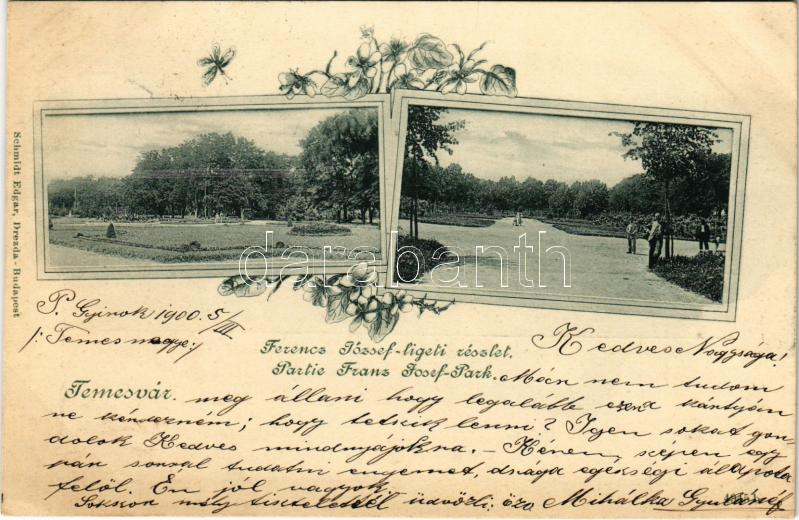 Schmidt Edgar, Drezda - Budapest
darabanth
P. Gyirok 1900. 5/III
/: Temesmegye :/
Ferencz József-ligeti részlet.
Partie Franz Josef-Park.
Temesvár.
Kedves Nagysága!
Mán nem tudom
meg állani hogy legalább ezen kártyán
ne kérdezném; hogy tetszik lenni? Igen sokat gon-
dolok Kedves mindnyájokra. - Kérem, szépen egy
pár sorral tudatni engemet, drága egészségi állapota
felől. Én jól vagyok
Sokszor mély tisztelettel üdvözli: özv. Mihálka Gyuláné